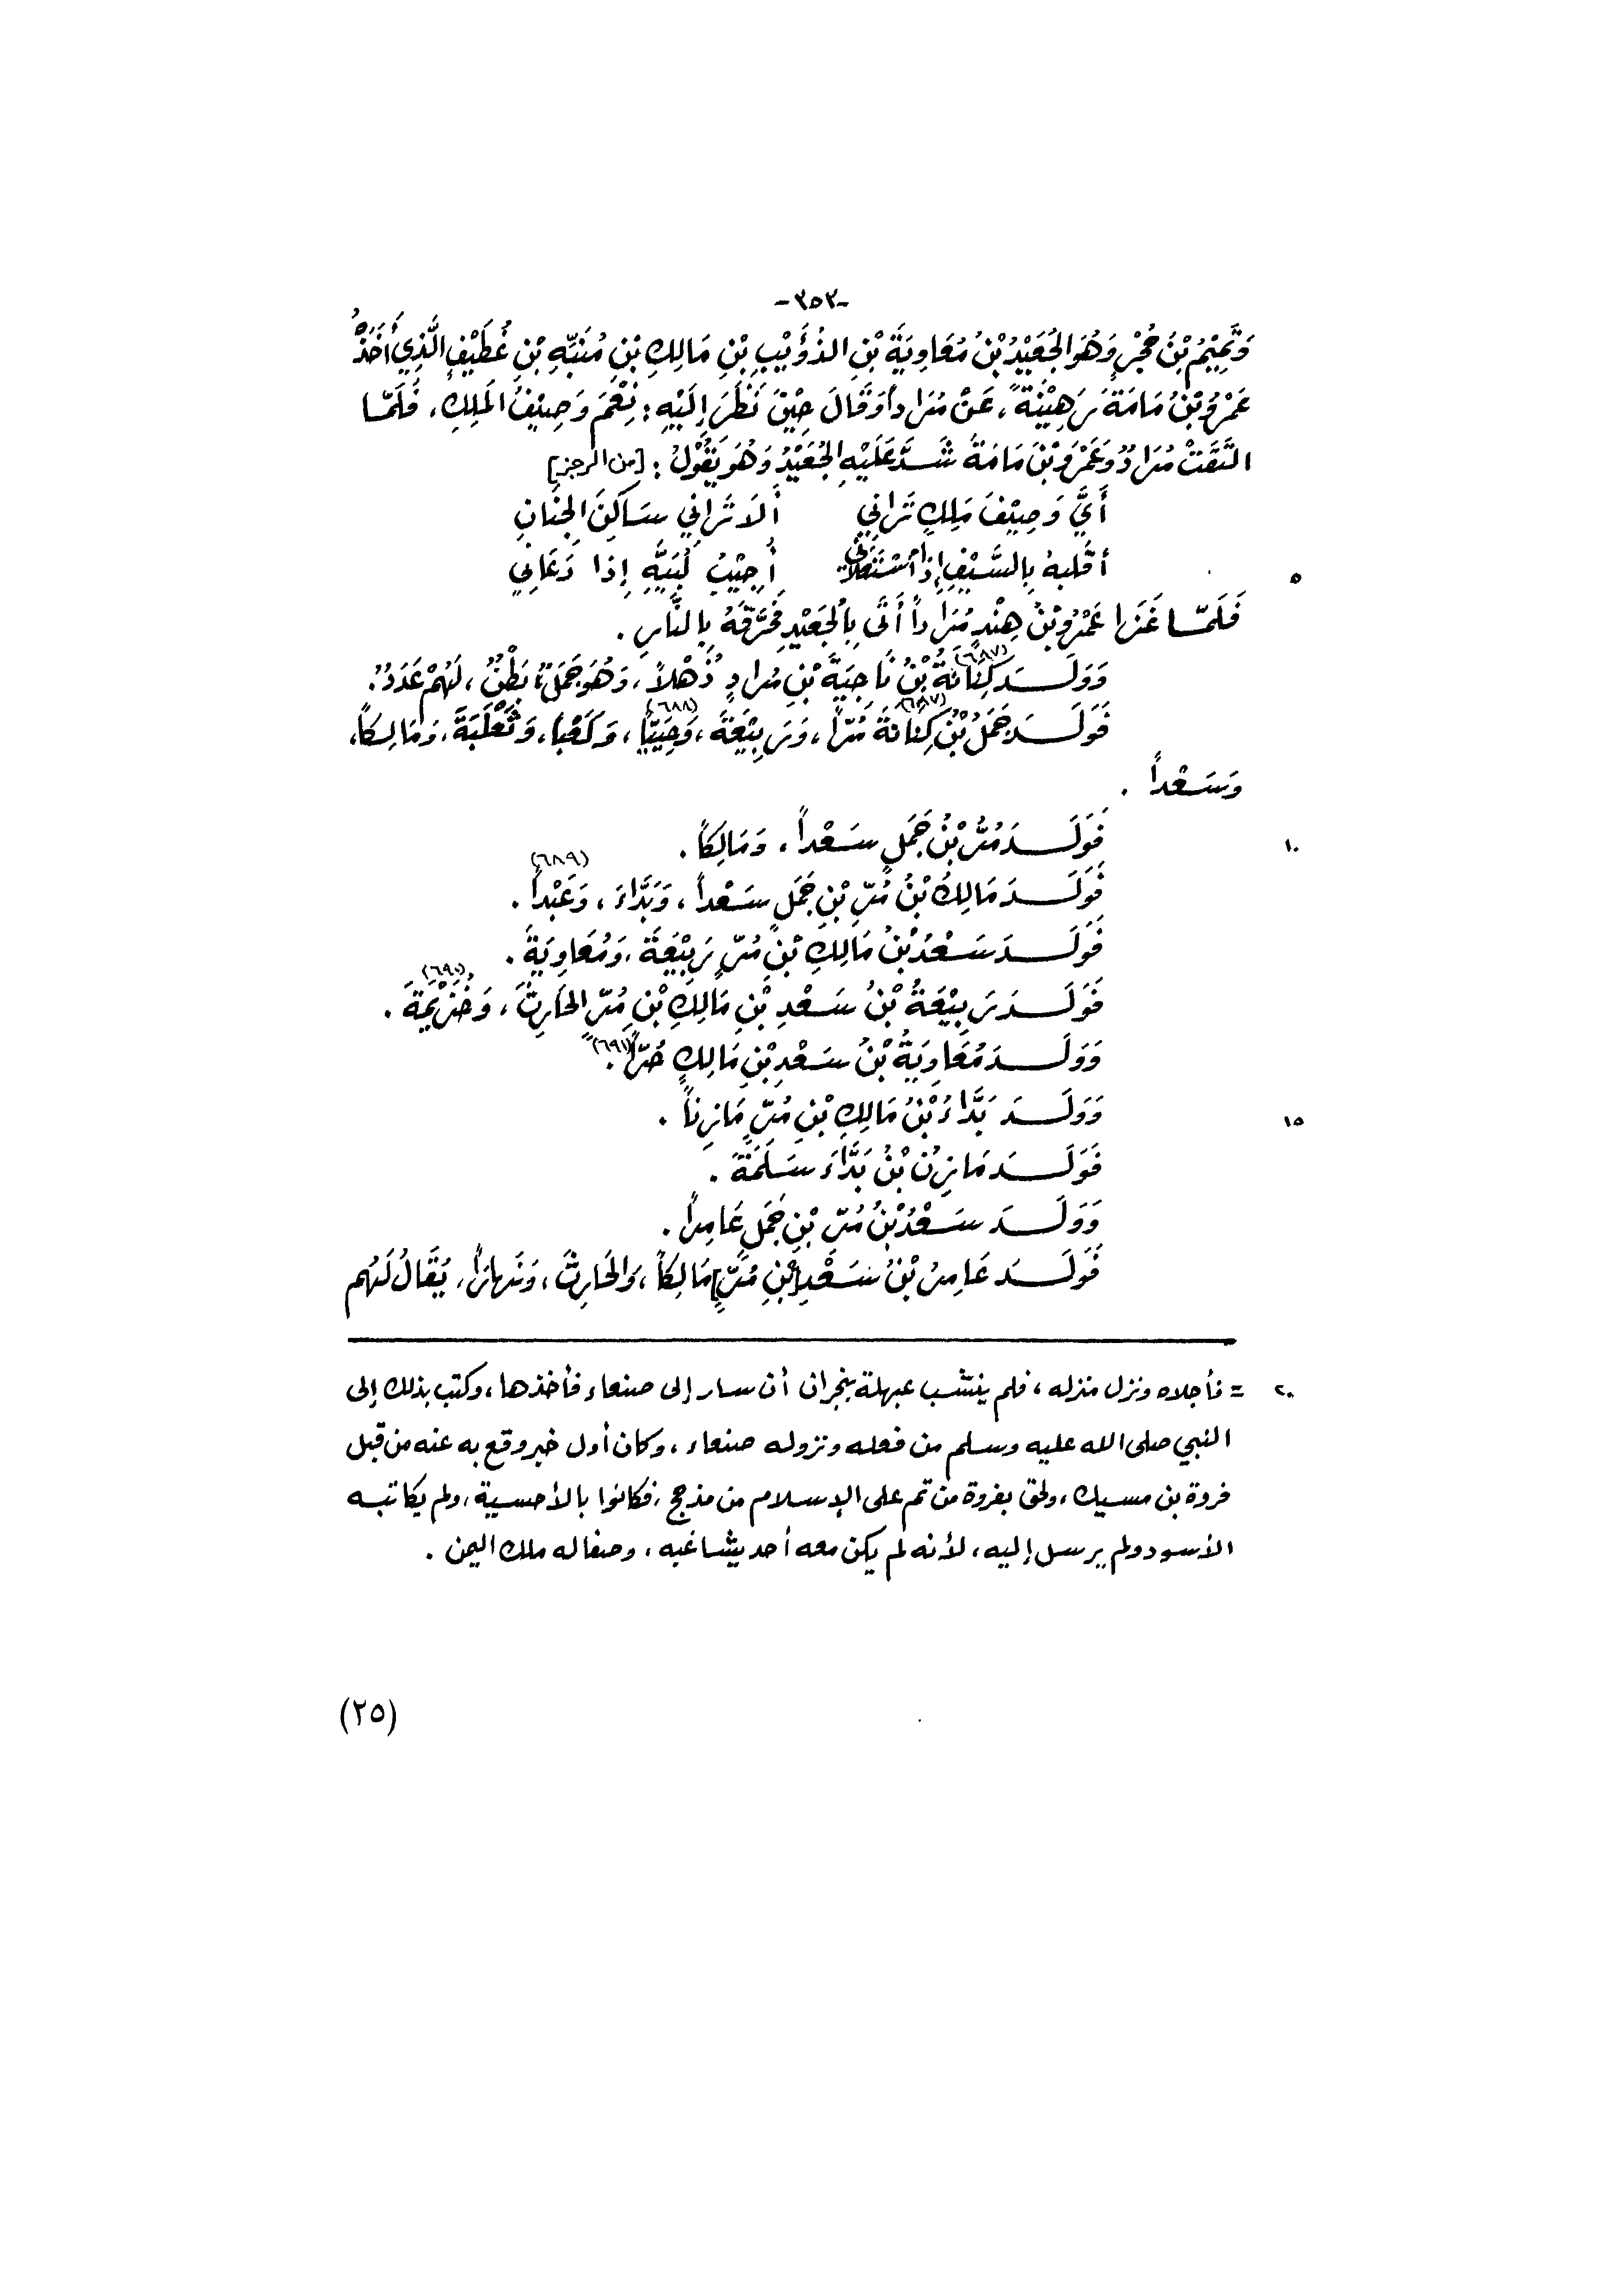 -٣٥٣-
وَتَمِيْمُ بْنُ حُجْرٍ وَهُوَ الجُعَيْدُ بْنُ مُعَاوِيَةَ بْنِ الذُؤَيْبِ بْنِ مَالِكِ بْنِ مُنَبِّهِ بْنِ غُطَيْفٍ الَّذِي أَخَذَهُ
عَمْرُو بْنُ مَامَةَ رَهِيْنَةً، عَنْ مُرَادٍ وَقَالَ حِيْنَ نَظَرَ إِلَيْهِ: نِعْمَ وَصِيْفُ المَلِكِ، فَلَمَّا
التَقَتْ مُرَادُ وَعَمْرَو بْنَ مَامَةَ شَدَّ عَلَيْهِ الجُعَيْدُ وَهُوَ يَقُوْلُ: [من الرجز]
أَيَّ وَصِيْفَ مَلِكٍ تَرَانِي أَلَا تَرَانِي سَاكِنَ الجَنَانِ
٥ أقْلبهُ بِالسَّيْفِ إذَا اسْتَقْلَانِي أُجِيْبُ لَبَيَّهِ إذا دَعَانِي
فَلَمَّا غَزَا عَمْرُو بْنُ هِنْدٍ مُرَاداً أَتَى بِالجُعَيْدِ فَحَرَّقَهُ بِالنَّارِ.
وَوَلَـدَ كِنَانَةُ (٦٨٧) بْنُ نَاجِيَةَ بْنِ مُرادٍ ذُهْلاً، وَهُوَ جَمَلٌ، بَطْنٌ، لَهُمْ عَدَدٌ.
فَوَلَـدَ جَمَلُ بْنُ كِنَانَةَ (٦٨٧) مُرّاً، وَرَبِيْعَةَ، وَحُيَيّاً (٦٨٨)، وَكَعْباً، وَثَعْلَبَةَ، وَمَالِكاً،
وَسَعْداً.
١٠ فَوَلَـدَ مُرُّ بْنُ جَمَلٍ سَعْداً، وَمَالِكاً.
فَوَلَـدَ مَالِكُ بْنُ مُرِّ بْنِ جَمَلٍ سَعْداً، وَبَدَّاءَ، وَعَبْداً (٦٨٩).
فَوَلَـدَ سَعْدُ بْنُ مَالِكِ بْنِ مُرٍّ رَبِيْعَةَ، وَمُعَاوِيَةَ.
فَوَلَـدَ رَبِيْعَةُ بْنُ سَعْدِ بْنِ مَالِكِ بْنِ مُرٍّ الحَارِثَ، وَخُزَيْمَةَ (٦٩٠).
وَوَلَـدَ مُعَاوِيَةُ بْنُ سَعْدِ بْنِ مَالِكٍ حُرّاً (٦٩١).
١٥ وَوَلَـدَ بَدَّاءُ بْنُ مَالِكِ بْنِ مُرٍّ مَازِناً.
فَوَلَـدَ مَازِنُ بْنُ بَدَّاءَ سَلَمَةَ.
وَوَلَـدَ سَعْدُ بْنُ مُرِّ بْنِ جَمَلٍ عَامِراً.
فَوَلَـدَ عَامِرُ بْنُ سَعْدِ [بْنِ مُرٍّ] مَالِكاً، وَالحَارِثَ، وَنَهاراً، يُقَالُ لَهُم
٢٠ = فأجلاه ونزل منزله، فلم ينشب عبهلة بنجران أن سار إلى صنعاء فأخذها، وكتب بذلك إلى
النبي صلى الله عليه وسلم من فعله ونزوله صنعاء، وكان أول خبر وقع به عنه من قبل
فروة بن مسيك، ولحق بفروة من تم على الإسلام من مذحج، فكانوا بالأحسية، ولم يكاتبه
الأسود ولم يرسل إليه، لأنه لم يكن معه أحد يشاغبه، وصفا له ملك اليمن.
(٢٥)